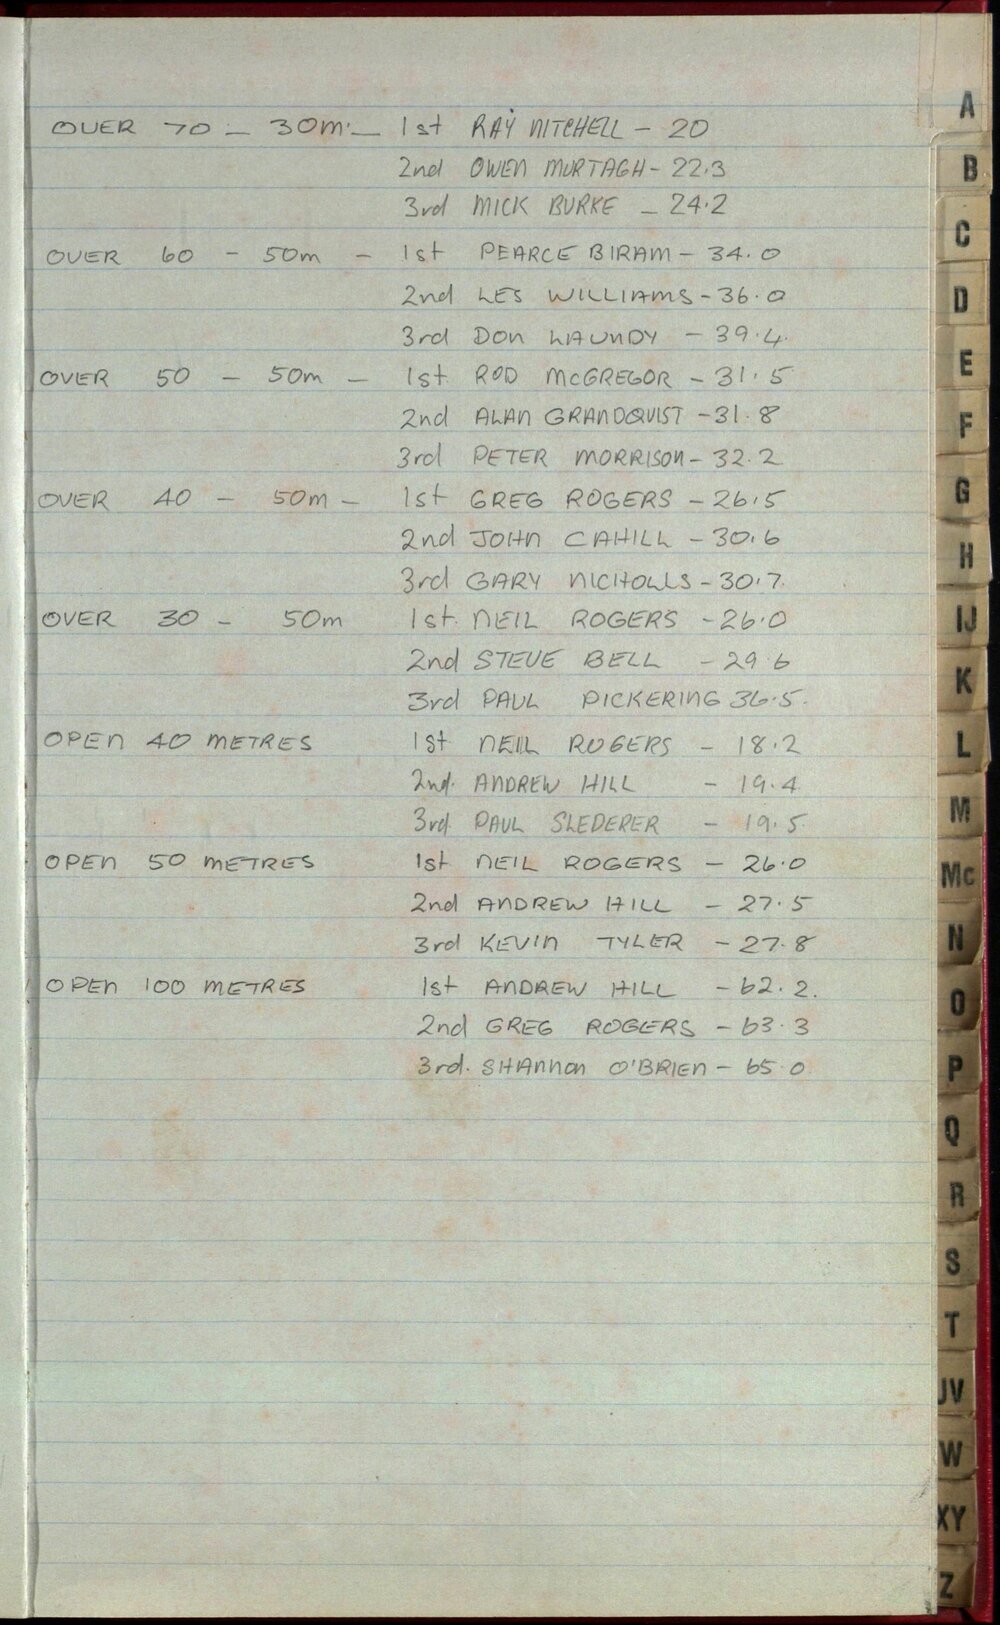 OVER 70 - 30m. - 1st RAY MITCHELL - 20
2nd OWEN MURTAGH - 22.3
3rd MICK BURKE - 24.2
OVER 60 - 50m - 1st PEARCE BIRAM - 34.0
2nd LES WILLIAMS - 36.0
3rd DON LAUNDY - 39.4.
OVER 50 - 50m - 1st ROD McGREGOR - 31.5
2nd ALAN GRANDQUIST - 31.8
3rd PETER MORRISON - 32.2
OVER 40 - 50m - 1st GREG ROGERS - 26.5
2nd JOHN CAHILL - 30.6
3rd GARY NICHOLLS - 30.7.
OVER 30 - 50m 1st. NEIL ROGERS - 26.0
2nd STEVE BELL - 29.6
3rd PAUL PICKERING 36.5.
OPEN 40 METRES 1st NEIL ROGERS - 18.2
2nd. ANDREW HILL - 19.4
3rd. PAUL SLEDERER - 19.5
OPEN 50 METRES 1st NEIL ROGERS - 26.0
2nd ANDREW HILL - 27.5
3rd KEVIN TYLER - 27.8
OPEN 100 METRES 1st ANDREW HILL - 62.2.
2nd GREG ROGERS - 63.3
3rd. SHANNON O'BRIEN - 65.0
A
B
C
D
E
F
G
H
IJ
K
L
M
Mc
N
O
P
Q
R
S
T
UV
W
XY
Z